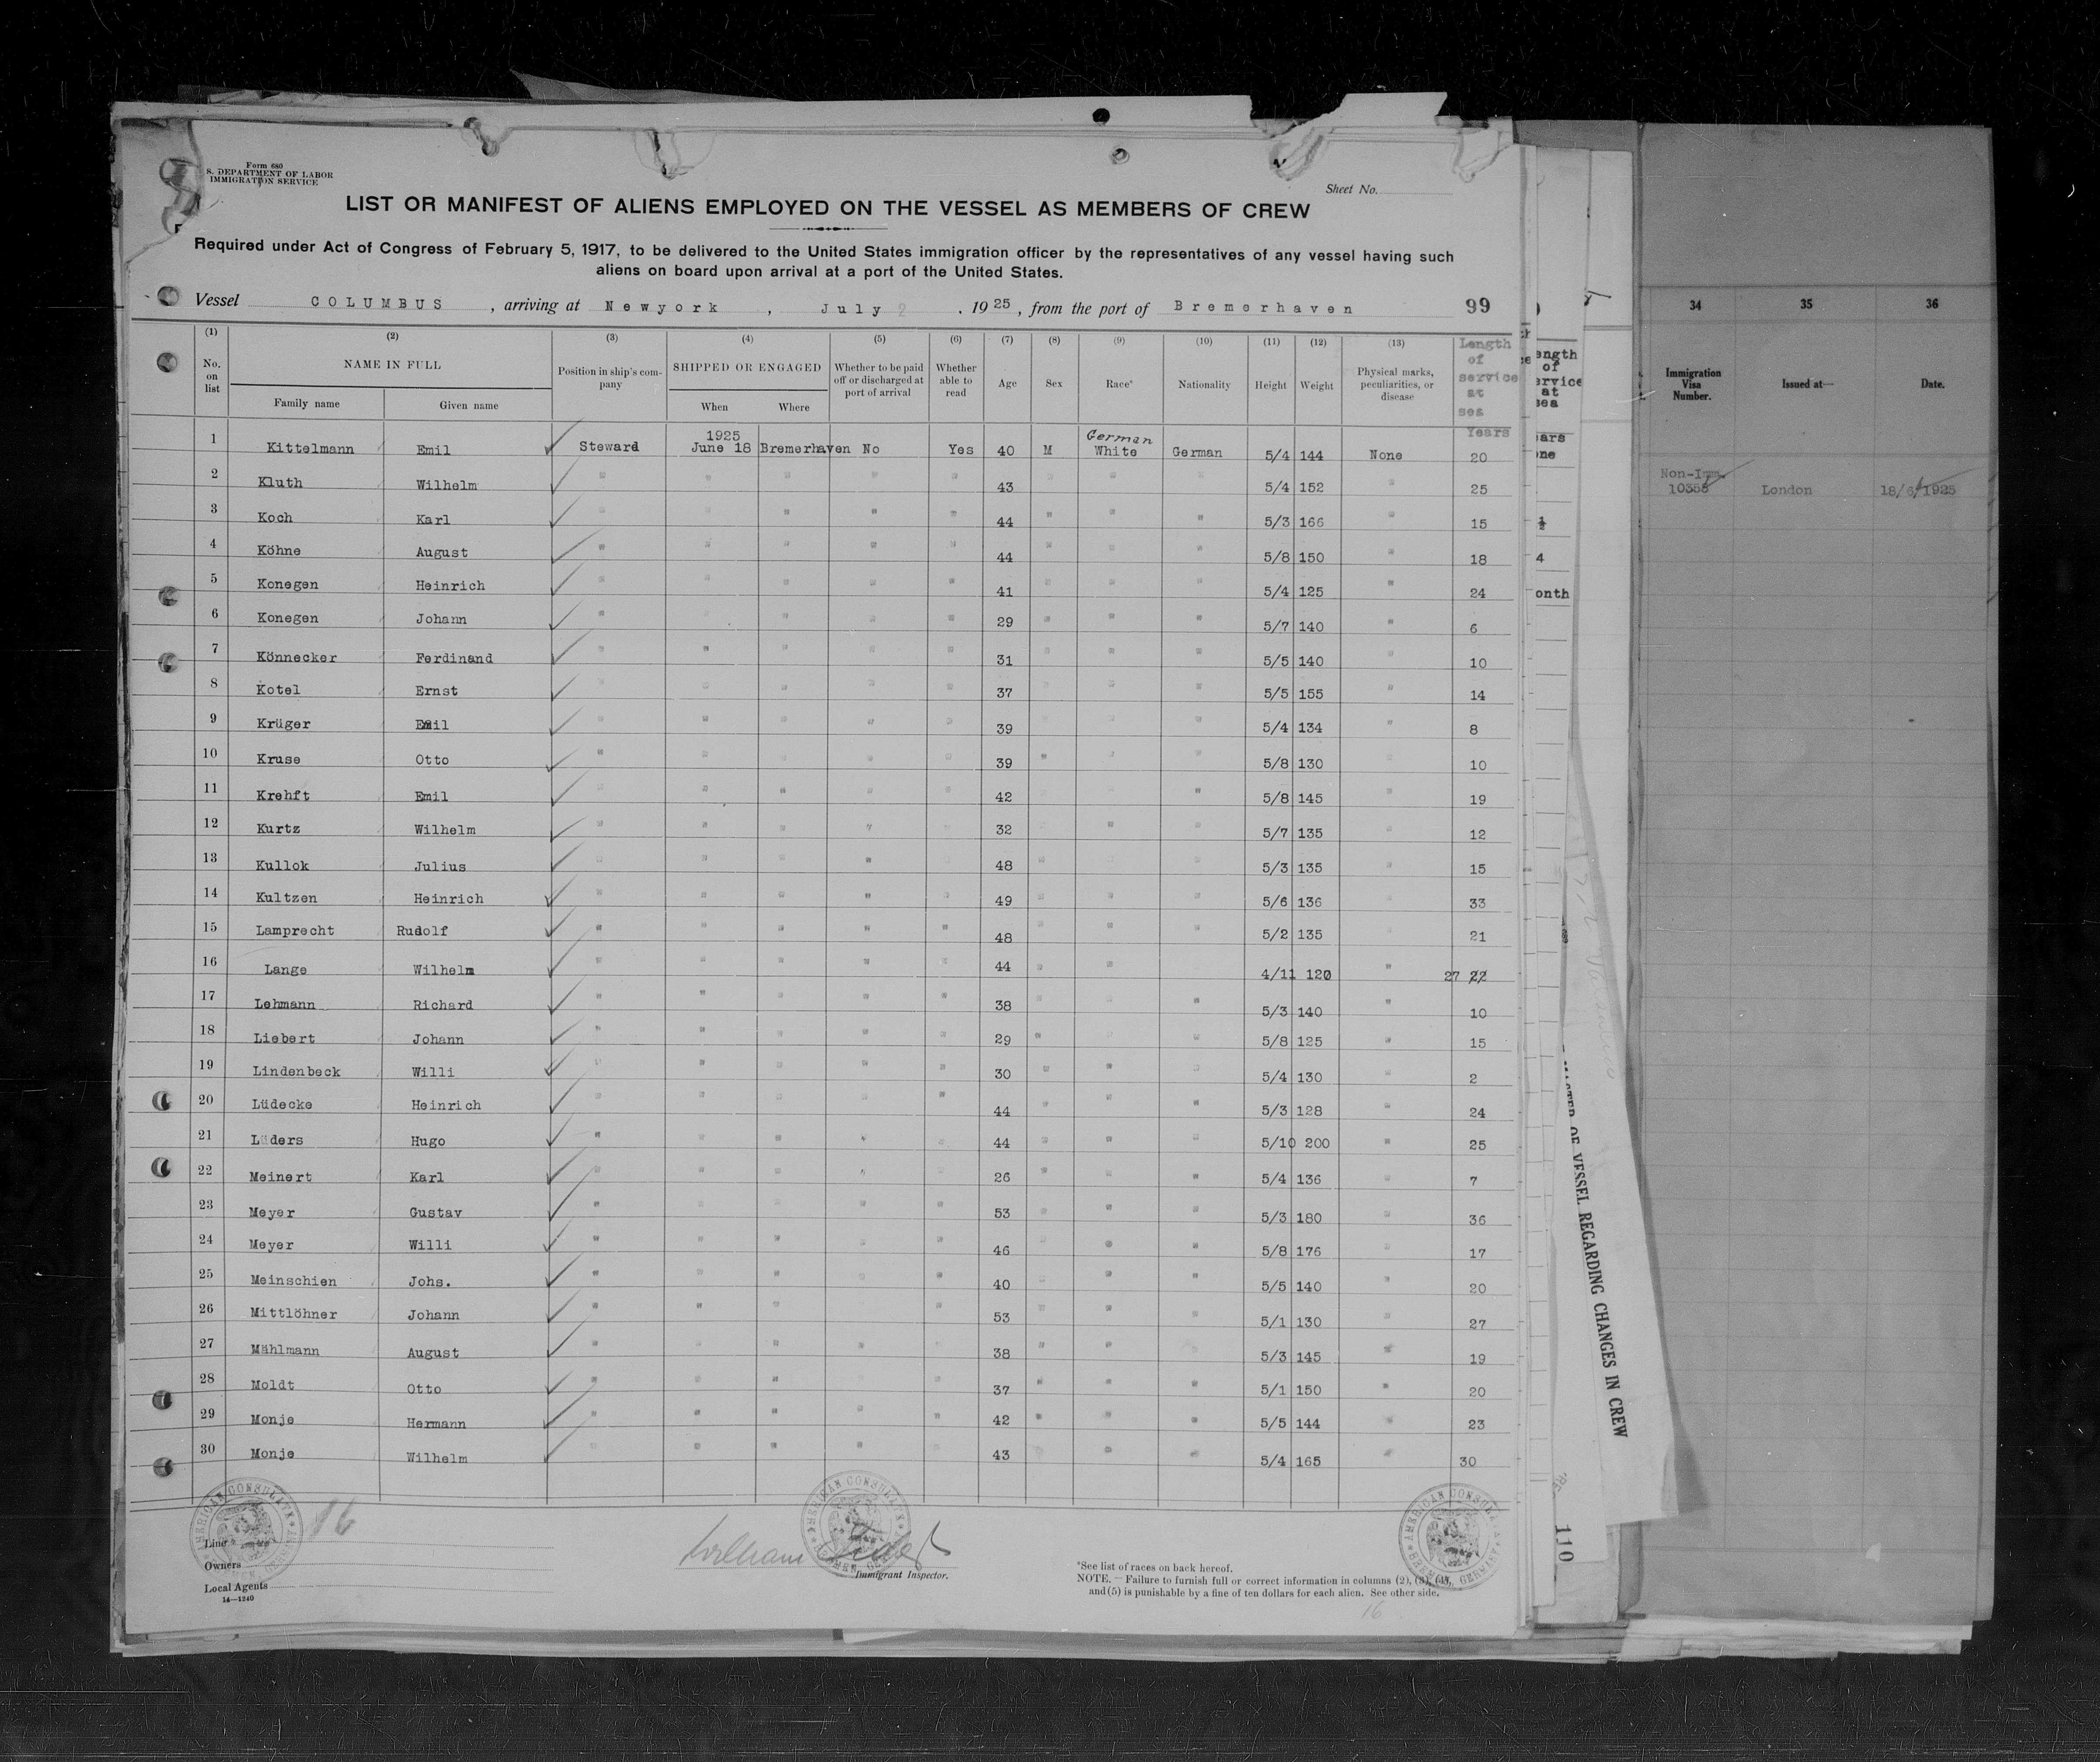 Form 680
S. DEPARTMENT OF LABOR
IMMIGRATION SERVICE
Sheet No.
LIST OR MANIFEST OF ALIENS EMPLOYED ON THE VESSEL AS MEMBERS OF CREW
Required under Act of Congress of February 5, 1917, to be delivered to the United States immigration officer by the representatives of any vessel having such
aliens on board upon arrival at a port of the United States.
Vessel COLUMBUS, arriving at Newyork, July 2, 1925, from the port of Bremerhaven 99
(1) (2) (3) (4) (5) (6) (7) (8) (9) (10) (11) (12) (13)
No. on list NAME IN FULL Family name Given name Position in ship's company SHIPPED OR ENGAGED When Where Whether to be paid off or discharged at port of arrival Whether able to read Age Sex Race* Nationality Height Weight Physical marks, peculiarities, or disease Length of service at sea Years
1 Kittelmann Emil Steward 1925 June 18 Bremerhaven No Yes 40 M German White German 5/4 144 None 20
2 Kluth Wilhelm " " " " " 43 " " " 5/4 152 " 25
3 Koch Karl " " " " " 44 " " " 5/3 166 " 15
4 Köhne August " " " " " 44 " " " 5/8 150 " 18
5 Konegen Heinrich " " " " " 41 " " " 5/4 125 " 24
6 Konegen Johann " " " " " 29 " " " 5/7 140 " 6
7 Könnecker Ferdinand " " " " " 31 " " " 5/5 140 " 10
8 Kotel Ernst " " " " " 37 " " " 5/5 155 " 14
9 Krüger Emil " " " " " 39 " " " 5/4 134 " 8
10 Kruse Otto " " " " " 39 " " " 5/8 130 " 10
11 Krehft Emil " " " " " 42 " " " 5/8 145 " 19
12 Kurtz Wilhelm " " " " " 32 " " " 5/7 135 " 12
13 Kullok Julius " " " " " 48 " " " 5/3 135 " 15
14 Kultzen Heinrich " " " " " 49 " " " 5/6 136 " 33
15 Lamprecht Rudolf " " " " " 48 " " " 5/2 135 " 21
16 Lange Wilhelm " " " " " 44 " " " 4/11 120 " 27 22
17 Lehmann Richard " " " " " 38 " " " 5/3 140 " 10
18 Liebert Johann " " " " " 29 " " " 5/8 125 " 15
19 Lindenbeck Willi " " " " " 30 " " " 5/4 130 " 2
20 Lüdecke Heinrich " " " " " 44 " " " 5/3 128 " 24
21 Lüders Hugo " " " " " 44 " " " 5/10 200 " 25
22 Meinert Karl " " " " " 26 " " " 5/4 136 " 7
23 Meyer Gustav " " " " " 53 " " " 5/3 180 " 36
24 Meyer Willi " " " " " 46 " " " 5/8 176 " 17
25 Meinschien Johs. " " " " " 40 " " " 5/5 140 " 20
26 Mittlöhner Johann " " " " " 53 " " " 5/1 130 " 27
27 Mählmann August " " " " " 38 " " " 5/3 145 " 19
28 Moldt Otto " " " " " 37 " " " 5/1 150 " 20
29 Monje Hermann " " " " " 42 " " " 5/5 144 " 23
30 Monje Wilhelm " " " " " 43 " " " 5/4 165 " 30
AMERICAN CONSULATE
16
Line
Owners
Local Agents
14—1240
AMERICAN CONSULATE
William
Immigrant Inspector.
*See list of races on back hereof.
NOTE.—Failure to furnish full or correct information in columns (2), (3), (4),
and (5) is punishable by a fine of ten dollars for each alien. See other side.
16
AMERICAN CONSULATE BREMEN, GERMANY
ength
of
ervice
at
sea
ears
one
½
4
onth
OF VESSEL REGARDING CHANGES IN CREW
110
34 35 36
Immigration Visa Number. Issued at— Date.
Non-Imm.
10358 London 18/6/1925